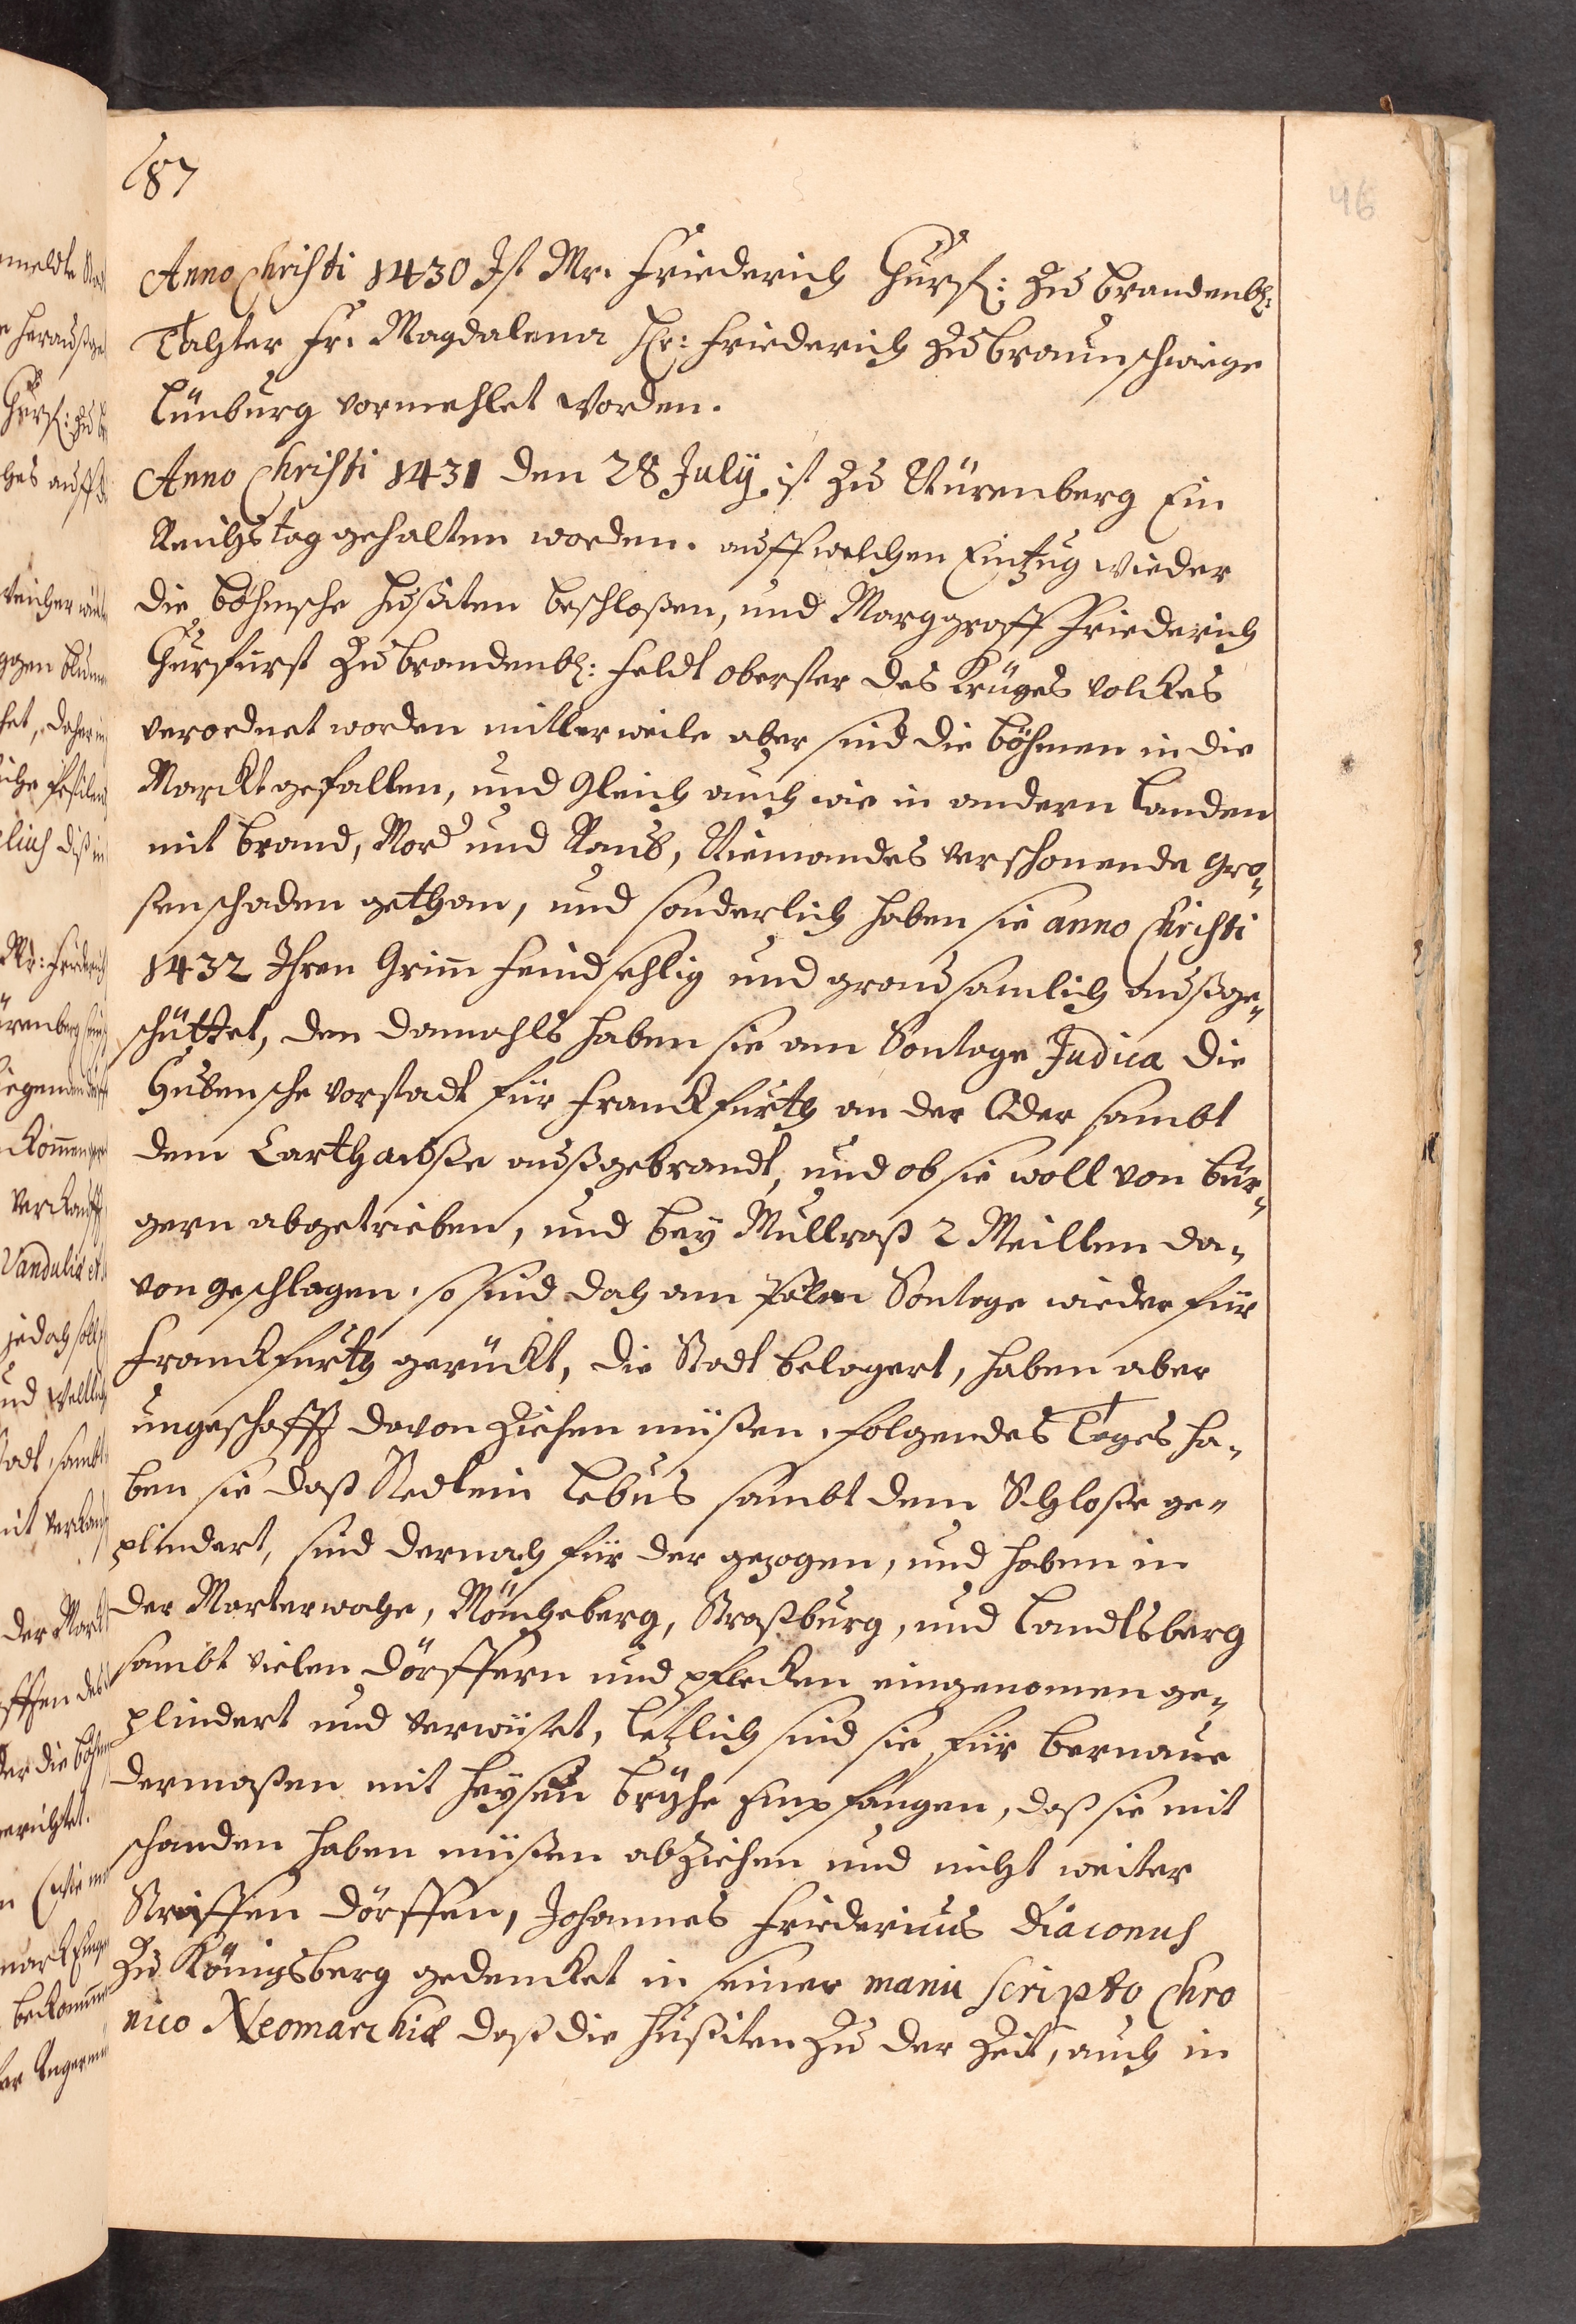 87
46
Anno Christi 1430 Ist Mr. Friederich Churf: zu Brandenb:
Tochter Fr. Magdalena H: Friederich zu Braunschweige
Lünburg vermehlet worden.
Anno Christi 1431 den 28 July ist zu Nürenberg Ein
Reichstag gehalten worden. auff welchen Einzug wieder
die Böhmsche Husiten beschloßen, und Marggraff Friederich
Churfürst zu Brandenb: Feldt oberster des Krüges volckes
verordnet worden mitlerweile aber sind die Böhmen in die
Marckt gefallen, und gleich auch wie in andern Landen
mit brand, Mord und Raub, Niemandes verschonende gro-
ßen schaden gethan, und sonderlich haben sie anno Christi
1432 Ihren Grim feindsehlig und grausamlich außge-
schüttet, den damahls haben sie am Sontage Judica die
Gubensche vorstadt für Franckfurth an der Oder sambt
dem Carthauße außgebrandt, und ob sie woll von bür-
gern abgetrieben, und bey Mullroß 2 Meillen da-
von geschlagen, so sind doch am Palm Sontage wieder für
Franckfurth gerückt, die Stadt belagert, haben aber
ungeschafft davon ziehen müßen, folgendes Tages ha-
ben sie daß Stedlein Lebus sambt dem Schloße ge-
plindert, sind dernach für der gezogen, und haben in
der Marterwoche, Müncheberg, Straßburg, und Landtsberg
sambt vielen dörffern und pflecken eingenomen ge-
plindert und verwüstet, letzlich sind sie für Bernaue
dermaßen mit heysen Brühe empfangen, daß sie mit
schanden haben müßen abziehen und nicht weiter
Streiffen dörffen, Johannes Fridericus Diaconus
zu Königsberg gedencket in seiner manu scripto Chro
nico Neomarchiæ daß die Hußiten zu der Zeit, auch in